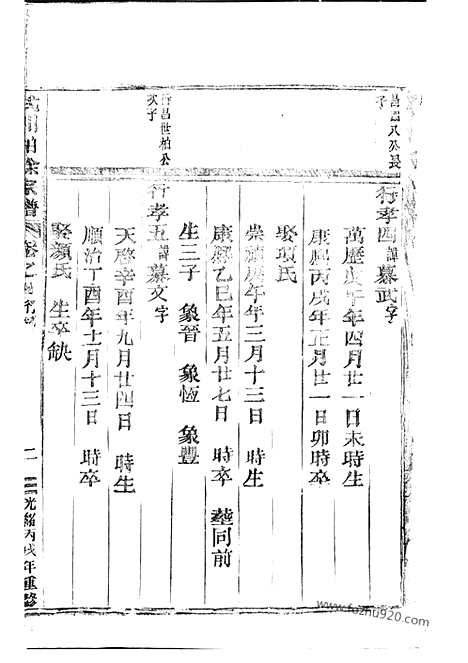 昌
八公長
子
行孝四諱慕武字
萬歷戊午年四月廿一日未時生
康熙丙戌年正月廿一日卯時卒
娶項氏
崇禎庚午年三月十三日 時生
康熙乙巳年五月廿七日 時卒 塟同前
生三子 象晉 象恆 象豐
行昌世柏公
次子
行孝五諱慕文字
天啓辛酉年九月廿四日 時生
順治丁酉年十一月十三日 時卒
娶顏氏 生卒缺
柏徐宗譜 卷之
二
光緒丙戌年重修
www.fozhu920.com